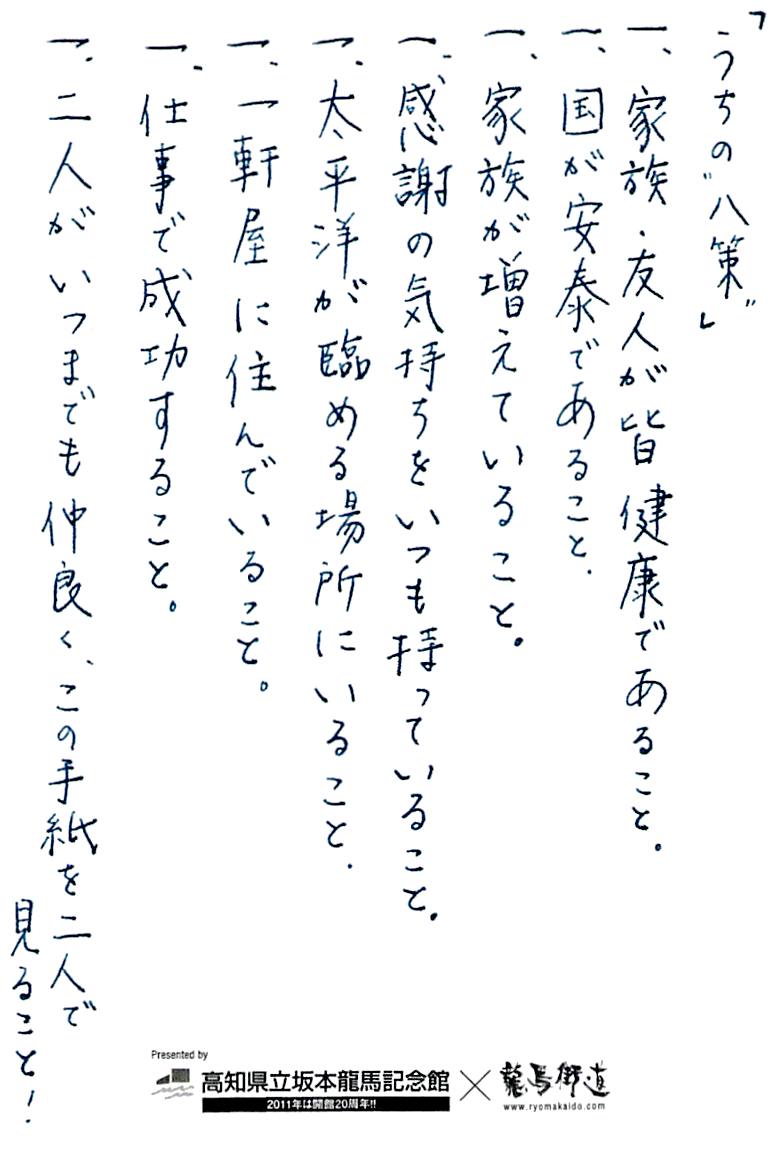 「うちの"八策"」
一、家族・友人が皆健康であること。
一、国が安泰であること.
一、家族が増えていること。
一、感謝の気持ちをいつも持っていること。
一、太平洋が臨める場所にいること.
一、一軒屋に住んでいること。
一、仕事で成功すること。
一、二人がいつまでも仲良く、この手紙を二人で
見ること!
Presented by
高知県立坂本龍馬記念館 × 龍馬街道
2011年は開館20周年!!
www.ryomakaido.com